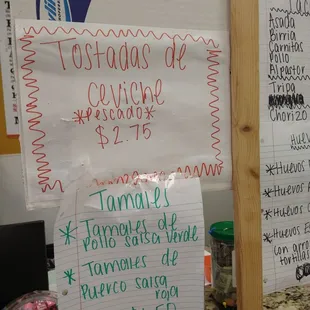 Tostadas de
ceviche
*Pescado*
$2.75
Tamales
* Tamales de
Pollo salsa verde
* Tamales de
Puerco salsa
roja
Asada
Birria
Carnitas
Pollo
Alpastor
Tripa
Chorizo
* Huevos
* Huevos
* Huevos
* Huevos
con arroz
tortillas